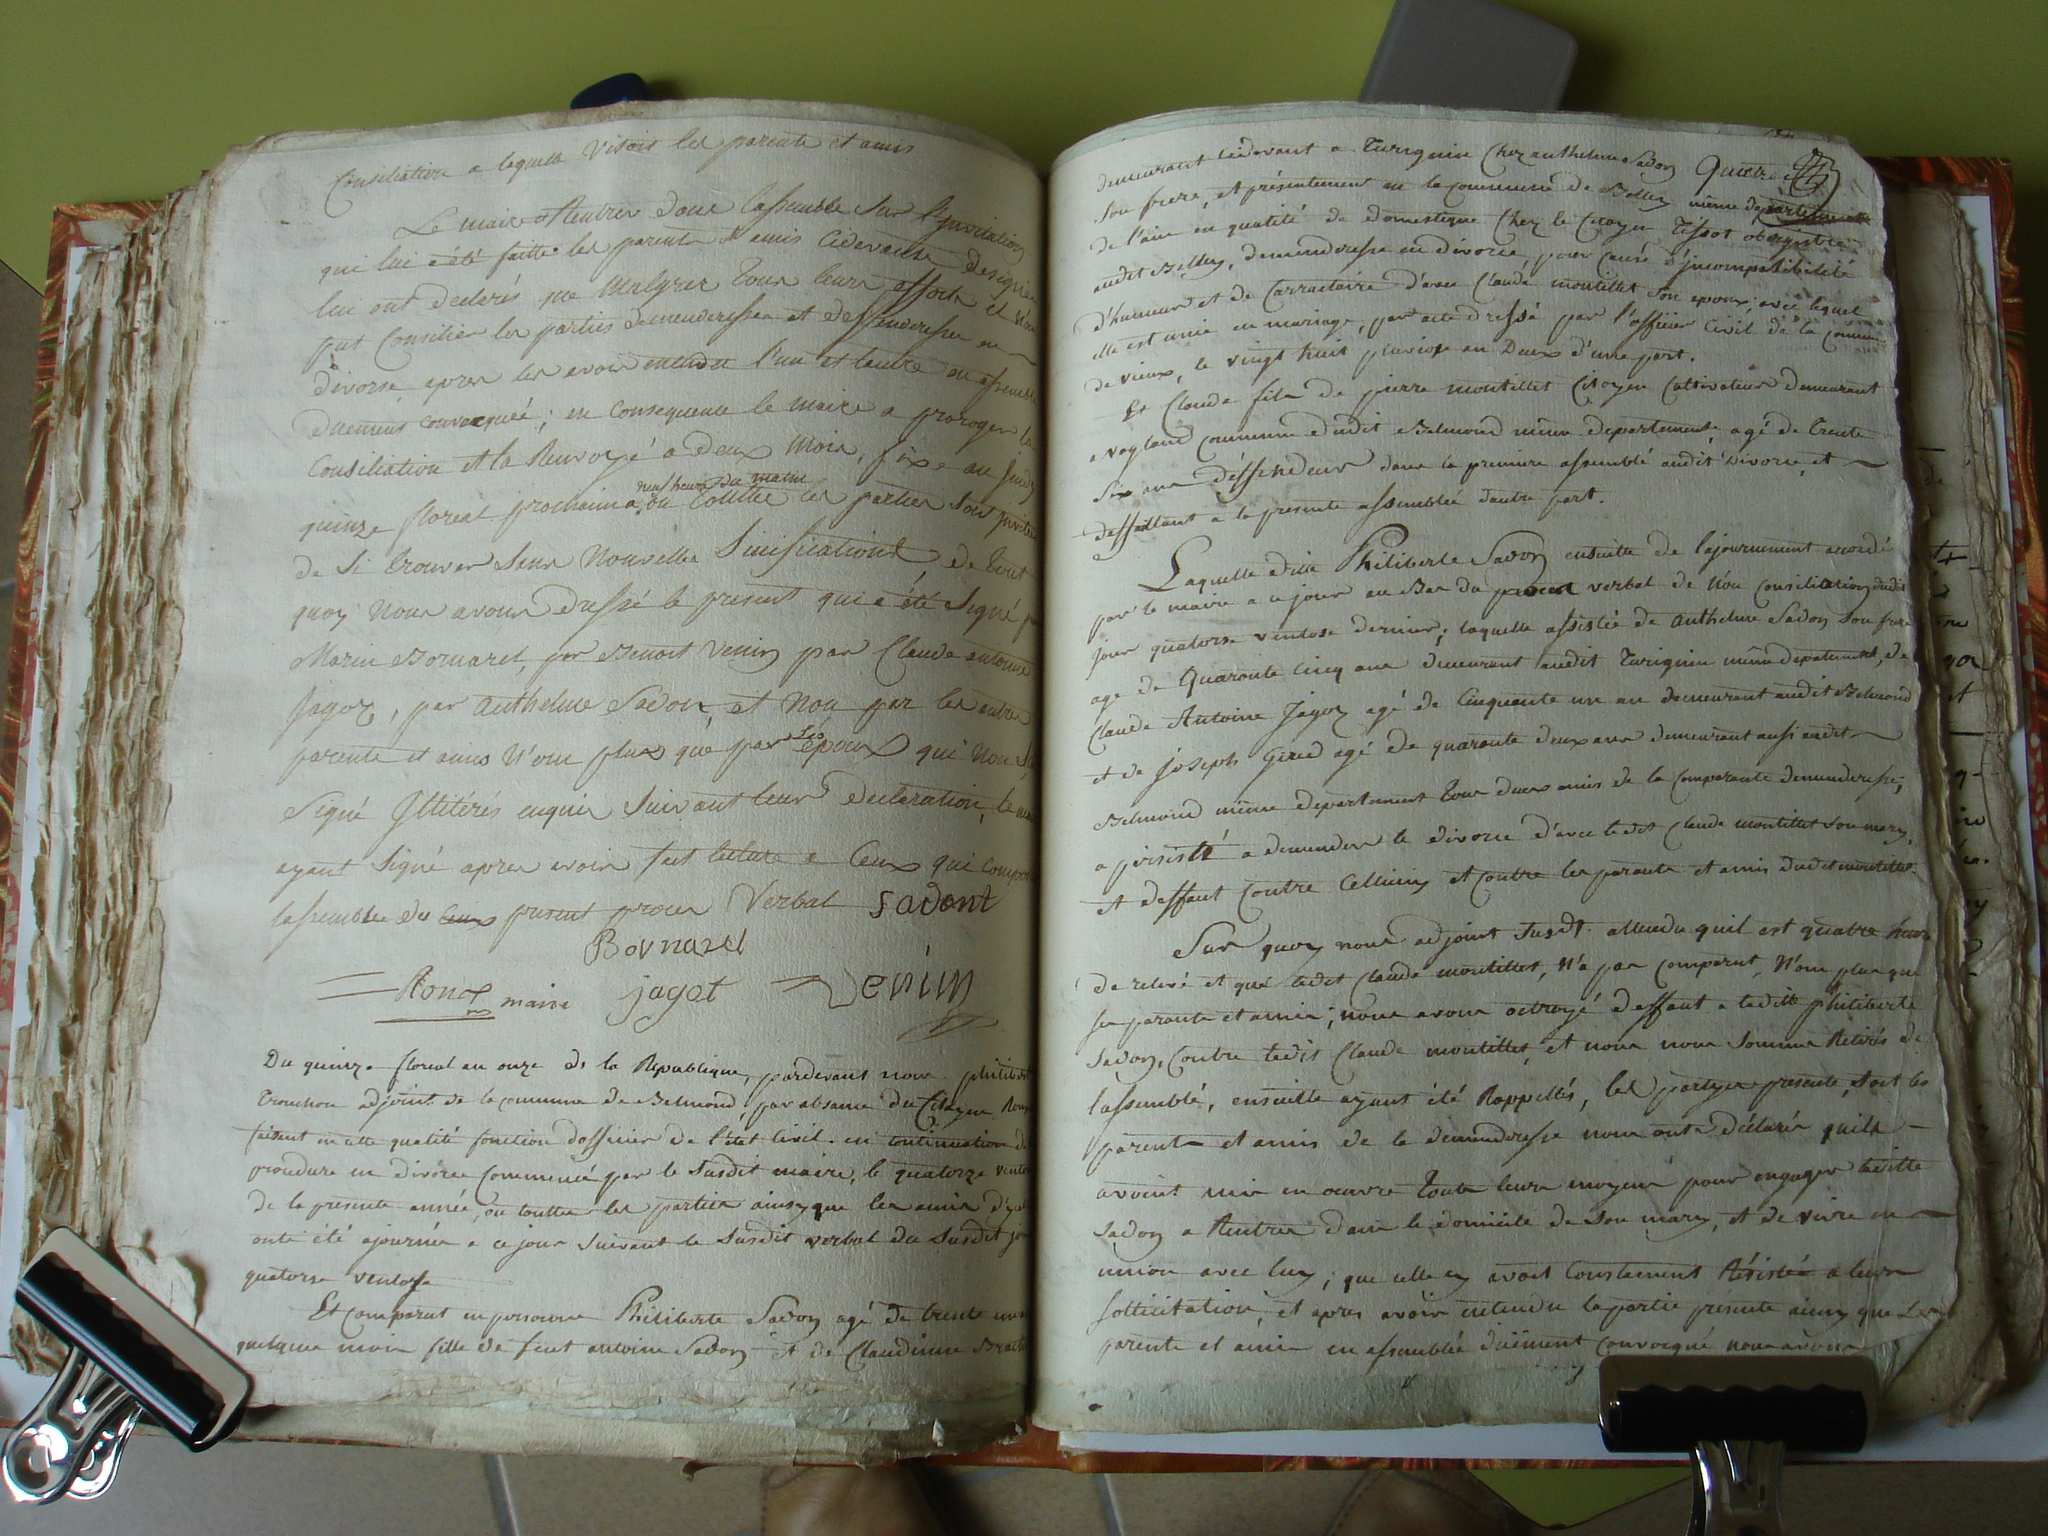 Consiliation a lequelle Visoit les parents et amis
Le maire Rentrer donc lassemblée Sur l'ynvitation
qui lui a été faitte les parents & amis cidevants designés
lui ont declarés que Malgrer tous leurs efforts il n'ont
put Consilier les parties demenderesse et deffenderesse en
divorse, apres les avoir entendu l'un et lautre en assemblé
duement convocquéé; en consequence le maire a proroger la
Consiliation et la Renvoyé a deux Mois, fixe au jeudy
neuf heures du matin
quinze floreal prochain a, ou toutte les parties sont jnvitée
de Si trouver Sens Nouvelles Sinification de tout
quoy Nous avons dressé le present qui a été Signé par
Marin Bornarel, par Benoit Venin par Claude antoine
Jagoz, par anthelme Sadon, et Non par les autres
parents et amis N'on plus que par les epoux qui Non
Signé Jllitérés enquis Suivant leurs declaration, le maire
ayant Signé apres avoir fait lecture a Ceux qui compose
lassemblée du present proces Verbal Sadont
Bornarel
Roux maire jagot Venin
Du quinze floreal an onze de la Republique, pardevant nous philibert
Trouchon adjoint de la commune de Belmond, par absence du Citoyen Roux
faisant en cette qualité fonction dofficier de l'etat Civil. en continuation de
procedure en divorce Commencé par le Susdit maire, le quatorze ventose
de la presente année, ou touttes les parties ainsy que les amis d'ycel
onts été ajournés a ce jour suivant le Susdit verbal du Susdit jour
quatorse ventose
Et comparut en personne Philiberte Sadon agé de trente
quelques mois fille de feut antoine Sadon et de Claudinne
demeurant cidevant a Turignin Chez anthelme Sadon Quatre
Son frere, et présentement en la commune de Belley même departement
de l'ain en qualité de domestique Chez le Citoyen Tissot
audit Belley, demenderesse en divorse, pour cause d'jncompatibilité
d'humeur et de Carractaire d'avec Claude montillet Son epoux, avec lequel
elle est unie en mariage, par acte dressé par l'officier Civil de la Commune
de vieux, le vingt huit pluviose an Deux d'une part.
Et Claude fils de pierre montillet Citoyen Cultivateur demeurant
a vogland commune dudit Belmond même departement, agé de trente
Six ans déffendeur dans la premiere assemblé audit Divorse, et
deffaillant a la presente assemblée dautre part.
Laquelle ditte Philiberte Sadon ensuitte de l'ajournement accordé
par le maire a ce jour au Bas du proces verbal de Non Consiliation dudit
jour quatorse ventose dernier, laquelle assistée de anthelme Sadon Son frere
age de Quaronte cinq ans demeurant audit Turignin même departement, de
Claude Antoine Jagoz agé de Cinquante un an demeurant audit Belmond
et de joseph Gered agé de quaronte deux ans demeurant aussi audit
Belmond même departement tous deux amis de la Comparante demanderesse;
a persisté a demander le divorse d'avec ledit Claude montillet Son mary,
et deffaut contre Celluis et contre les parents et amis dudit montillet.
Sur quoy nous adjoint Susdt. attendu quil est quatre heures
de relevé et que ledit Claude montillet, N'a pas comparut, N'on plus que
ses parents et amis; nous avons octroyé deffaut a laditte philiberte
Sadon, contre ledit Claude montillet, et nous nous Somme Retirés de
l'assemblé, ensuitte ayant été Rappellés, les partyes presente, Soit les
parents et amis de la demenderesse nous onts déclarés quils
avoint mis en oeuvre toute leurs moyens pour engager laditte
Sadon a Rentrer dans le domicile de Son mary, et de vivre en
union avec luy; que celle cy avoit Constement Résistée a leurs
sollicitation, et apres avoir entendu la partie présente ainsy que Les
parents et amis en assemblée duëment Convocqué nous avons